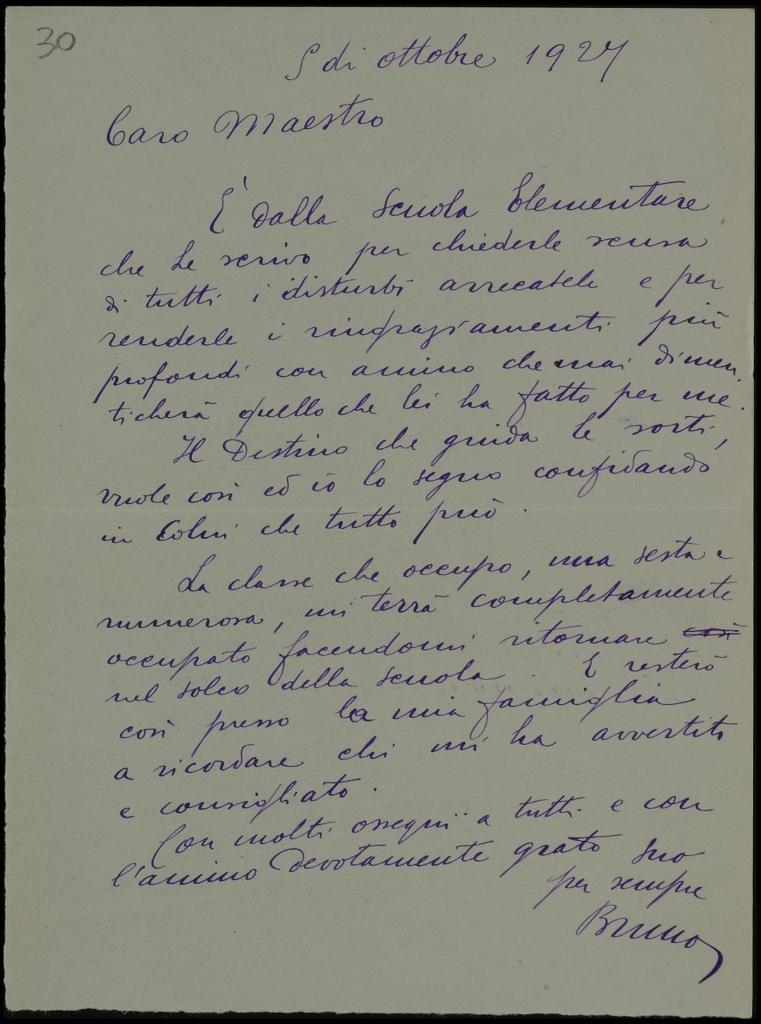 30
5 di ottobre 1927
Caro Maestro
È dalla Scuola Elementare
che Le scrivo per chiederle scusa
di tutti i disturbi arrecatele e per
renderle i ringraziamenti più
profondi con animo che mai dimen
ticherà quello che lei ha fatto per me.
Il Destino che guida le sorti,
vuole così ed io lo seguo confidando
in Colui che tutto può.
La classe che occupo, una sesta e
numerosa, mi terrà completamente
occupato facendomi ritornare così
nel solco della scuola. E resterò
così presso la mia famiglia
a ricordare chi mi ha avvertito
e consigliato.
Con molti ossequii a tutti e con
l'animo devotamente grato suo
per sempre
Bruno